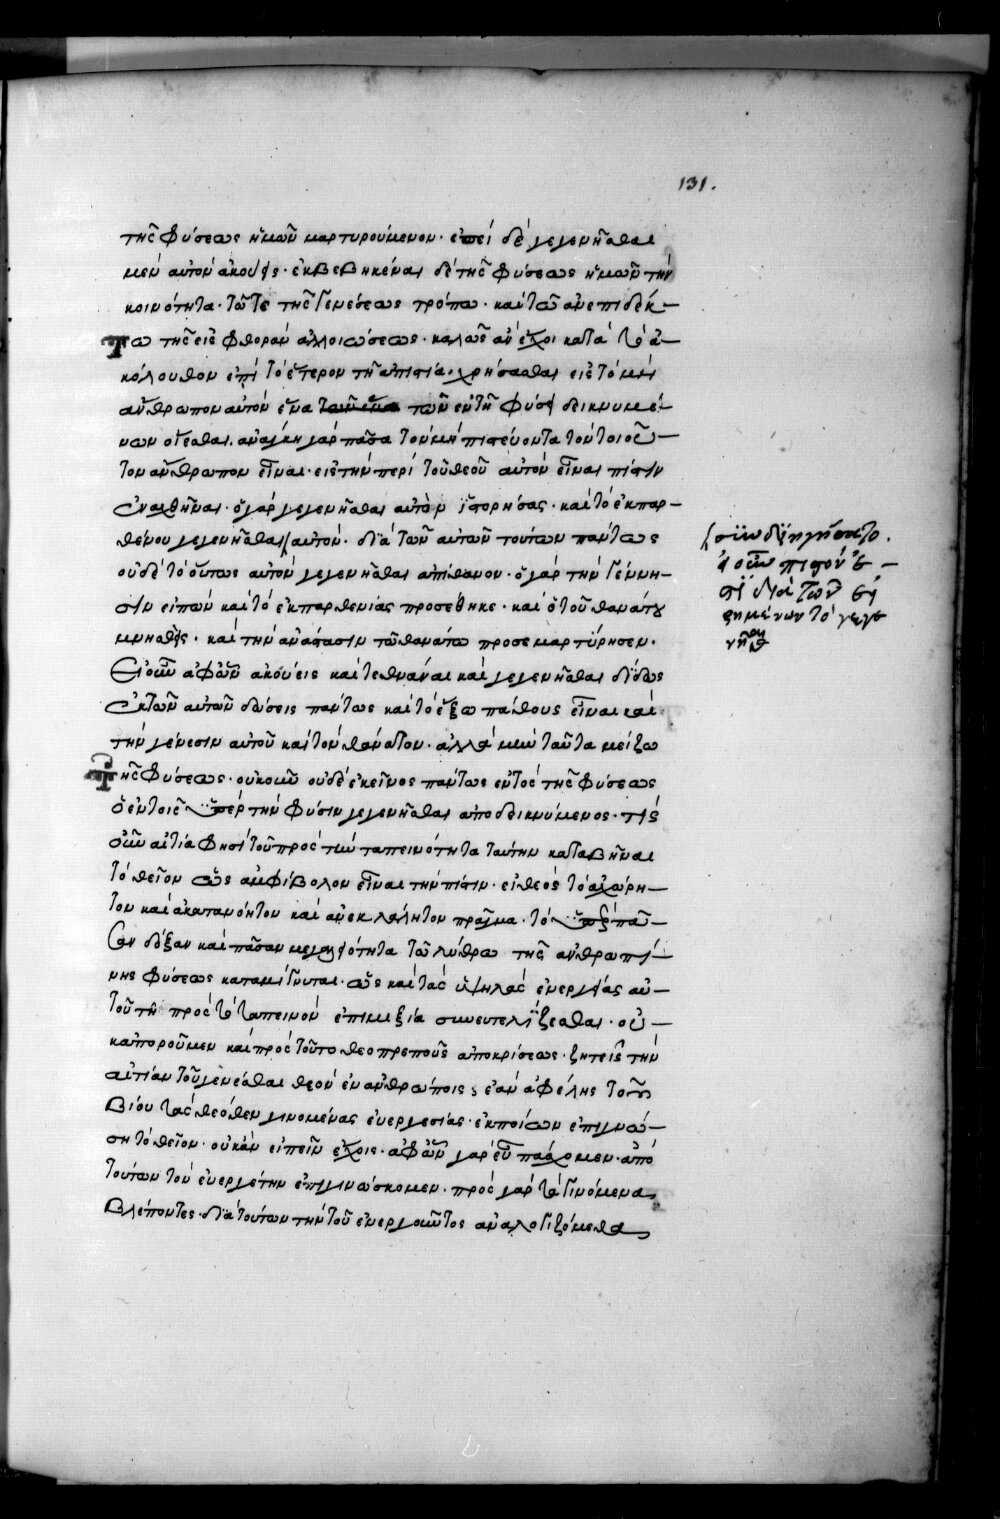 131.
τῆς φύσεως ἡμῶν μαρτυρούμενον· ἐπεὶ δὲ γεγενῆσθαι
μὲν αὐτὸν ἀκούεις· ἐκβεβηκέναι δὲ τῆς φύσεως ἡμῶν τὴν
κοινότητα· τῶ τε τῆς γενέσεως τρόπω· καὶ τῶ ἀνεπιδέκ-
τω τῆς εἰς φθορὰν ἀλλοιώσεως· καλῶς ἂν ἔχοι κατὰ τὸ ἀ-
κόλουθον ἐπὶ τὸ ἕτερον τῆ ἀπιστία χρήσασθαι εἰς τὸ μὴ
ἄνθρωπον αὐτὸν ἕνα τῶν ἐν τῆ φύσει δικνυμέ-
νων οἴεσθαι. ἀνάγκη γὰρ πᾶσα τὸν μὴ πιστεύοντα τὸν τοιοῦ-
τον ἄνθρωπον εἶναι· εἰς τὴν περὶ τοῦ θεοῦ αὐτὸν εἶναι πίστιν
ἐναχθῆναι· ὁ γὰρ γεγενῆσθαι αὐτὸν ἱστορήσας· καὶ τὸ ἐκ παρ-
θένου γεγενῆσθαι αὐτὸν· διὰ τῶν αὐτῶν τούτων πάντως
οὐδὲ τὸ οὕτως αὐτὸν γεγενῆσθαι ἀπίθανον· ὁ γὰρ τὴν γέννη-
σιν εἰπὼν καὶ τὸ ἐκ παρθενίας προσέθηκε· καὶ ὁ τοῦ θανάτου
μνησθεὶς· καὶ τὴν ἀνάστασιν τῶ θανάτω προσεμαρτύρησεν·
Εἰ οὖν ἀφ' ὧν ἀκούεις καὶ τεθνάναι καὶ γεγενῆσθαι δίδως
Ἐκ τῶν αὐτῶν δώσεις πάντως καὶ τὸ ἔξω πάθους εἶναι καὶ
τὴν γένεσιν αὐτοῦ καὶ τὸν θάνατον· ἀλλὰ μὴν ταῦτα μείζω
τῆς φύσεως· οὐκοῦν οὐδὲ ἐκεῖνος πάντως ἐντὸς τῆς φύσεως
ὁ ἐν τοῖς ὑπὲρ τὴν φύσιν γεγενῆσθαι ἀποδικνύμενος· τίς
οὖν αἰτία φησὶ τοῦ πρὸς τὴν ταπεινότητα ταύτην καταβῆναι
τὸ θεῖον ὡς ἀμφίβολον εἶναι τὴν πίστιν· εἰ θεὸς τὸ ἀχώρη-
τον καὶ ἀκατανόητον καὶ ἀνεκλάλητον πρᾶγμα· τὸ ὑπὲρ πᾶ-
σαν δόξαν καὶ πᾶσαν μεγαλειότητα τῶ λύθρω τῆς ἀνθρωπί-
νης φύσεως καταμίγνυται· ὡς καὶ τὰς ὑψηλὰς ἐνεργείας αὐ-
τοῦ τῆ πρὸς τὸ ταπεινὸν ἐπιμιξία συνευτελίζεσθαι· οὐ-
κ ἀποροῦμεν καὶ πρὸς τοῦτο θεοπρεποῦς ἀποκρίσεως· ζητεῖς τὴν
αἰτίαν τοῦ γενέσθαι θεὸν ἐν ἀνθρώποις, ἐὰν ἀφέλης τοῦ
βίου τὰς θεόθεν γινομένας εὐεργεσίας· ἐκ ποίων ἐπιγνώ-
ση τὸ θεῖον· οὐκ ἂν εἰπεῖν ἔχοις· ἀφ' ὧν γὰρ εὖ πάσχομεν· ἀπὸ
τούτων τὸν εὐεργέτην ἐπιγινώσκομεν· πρὸς γὰρ τὰ γινόμενα
βλέποντες· διὰ τούτων τὴν τοῦ ἐνεργοῦντος ἀναλογιζόμεθα
συνδιηγήσατο.
εἰ οὖν πιστόν ἐ-
στι διὰ τῶν εἰ
ρημένων τὸ γεγε
νῆσθαι